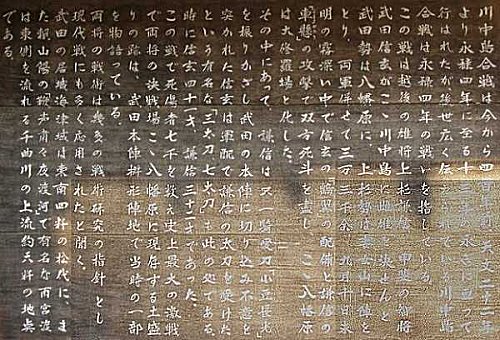 川中島合戦は今から四百年の天文二十二年
より永禄四年に至る十三年の永きに亘って
行はれたが後世広く伝えられている川中島
合戦は永禄四年の戦いを指している。
この戦は越後の雄将上杉謙信、甲斐の智将
武田信玄がここ川中島に雌雄を決せんと
武田勢は八幡原に、上杉勢は妻女山に陣を
とり、両軍併せて三万三千余、九月十日未
明の霧深い中で信玄の鶴翼の配備と謙信の
「車懸」の攻撃で双方死斗を盡し、ここ八幡原
は大修羅場と化した。
その中にあって、謙信は只一騎愛刀「小豆長光」
を振りかざし武田の本陣に切り込み不意を
突かれた信玄は軍配で謙信の太刀を受けた
という有名な「三太刀七太刀」も此の処である。
時に信玄四十才、謙信三十二才であった。
この戦で死傷者七千を数え史上最大の激戦
で両将の決戦場ここ八幡原に現存する土盛
りの跡は、武田本陣桝形陣地で当時の一部
を物語っている。
両将の戦術は幾多の戦術研究の指針とし
現代戦にも多く応用されたと聞く。
武田の居城海津城は東南四粁の松代に、ま
た頼山陽の鞭声粛々夜渡河で有名な雨宮渡
は東側を流れる千曲川の上流約六粁の地点
である。